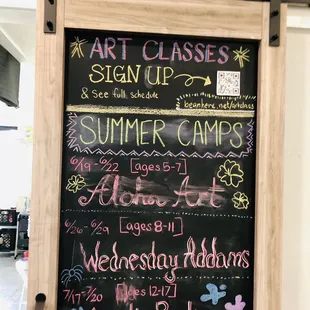 ART CLASSES
SIGN UP
& See full schedule
beanhere.net/artclass
SUMMER CAMPS
6/19 - 6/22 [ages 5-7]
Aloha Art
6/26 - 6/29 [ages 8-11]
Wednesday Addams
7/17 - 7/20 [ages 12-17]